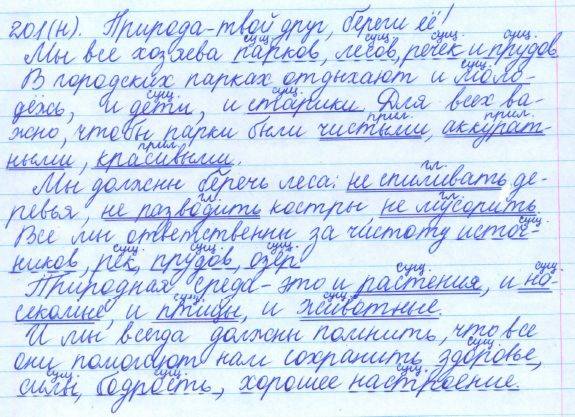 201(н). Природа-твой друг, береги её!
сущ. сущ. сущ. сущ.
Мы все хозяева парков, лесов, речек и прудов
сущ.
В городских парках отдыхают и моло-
сущ. сущ.
дёжь, и дети, и старики. Для всех ва-
прил. прил.
жно, чтобы парки были чистыми, аккурат-
прил.
ными, красивыми.
гл.
Мы должны беречь леса: не спиливать де-
гл. гл.
ревья, не разводить костры не мусорить.
сущ.
Все мы ответственны за чистоту источ-
сущ. сущ. сущ.
ников, рек, прудов, озёр
сущ. сущ.
Природная среда-это и растения, и на-
сущ. сущ.
секомые, и птицы, и животные.
И мы всегда должны помнить, что все
сущ.
они помогают нам сохранить здоровье,
сущ. сущ. сущ.
силы, бодрость, хорошее настроение.